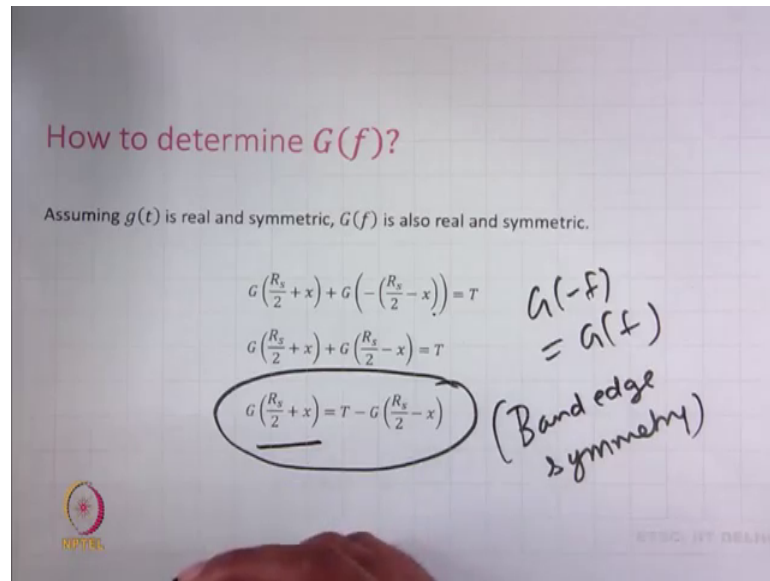 How to determine G(f)?
Assuming g(t) is real and symmetric, G(f) is also real and symmetric.
G(R_s/2 + x) + G(-(R_s/2 - x)) = T
G(R_s/2 + x) + G(R_s/2 - x) = T
G(R_s/2 + x) = T - G(R_s/2 - x)
G(-f)
= G(f)
(Band edge
symmetry)
NPTEL
ETSC, IIT DELHI